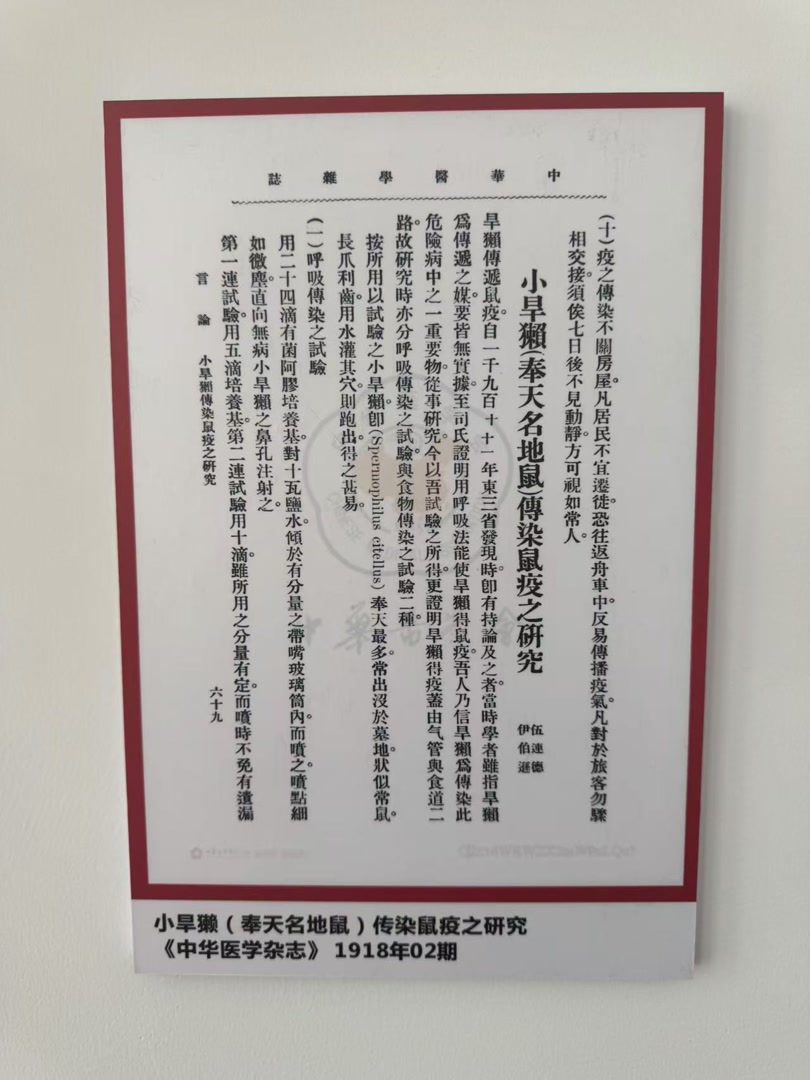 中華醫學雜誌
(十)疫之傳染不關房屋。凡居民不宜遷徙。恐往返舟車中。反易傳播疫氣。凡對於旅客勿驟
相交接。須俟七日後不見動靜。方可視如常人。
小旱獺(奉天名地鼠)傳染鼠疫之硏究
伍連德
伊伯遜
旱獺傳遞鼠疫。自一千九百十十一年東三省發現。時卽有持論及之者。當時學者雖指旱獺
爲傳遞之媒。要皆無實據。至司氏證明用呼吸法能使旱獺得鼠疫。吾人乃信旱獺爲傳染此
危險病中之一重要物。從事硏究。今以吾試驗之所得。更證明旱獺得疫蓋由气管與食道二
路。故硏究時亦分呼吸傳染之試驗。與食物傳染之試驗二種。
按所用以試驗之小旱獺。卽(Spermophilus eitellus)奉天最多。常出沒於墓地。狀似常鼠。
長爪利齒。用水灌其穴。則跑出。得之甚易。
(一)呼吸傳染之試驗
用二十四滴有菌阿膠培養基。對十瓦鹽水。傾於有分量之帶嘴玻璃筒內。而噴之。噴點細
如微塵。直向無病小旱獺之鼻孔注射之。
第一連試驗。用五滴培養基。第二連試驗用十滴。雖所用之分量有定。而噴時不免有遺漏
言論 小旱獺傳染鼠疫之硏究
六十九
小旱獭（奉天名地鼠）传染鼠疫之研究
《中华医学杂志》 1918年02期